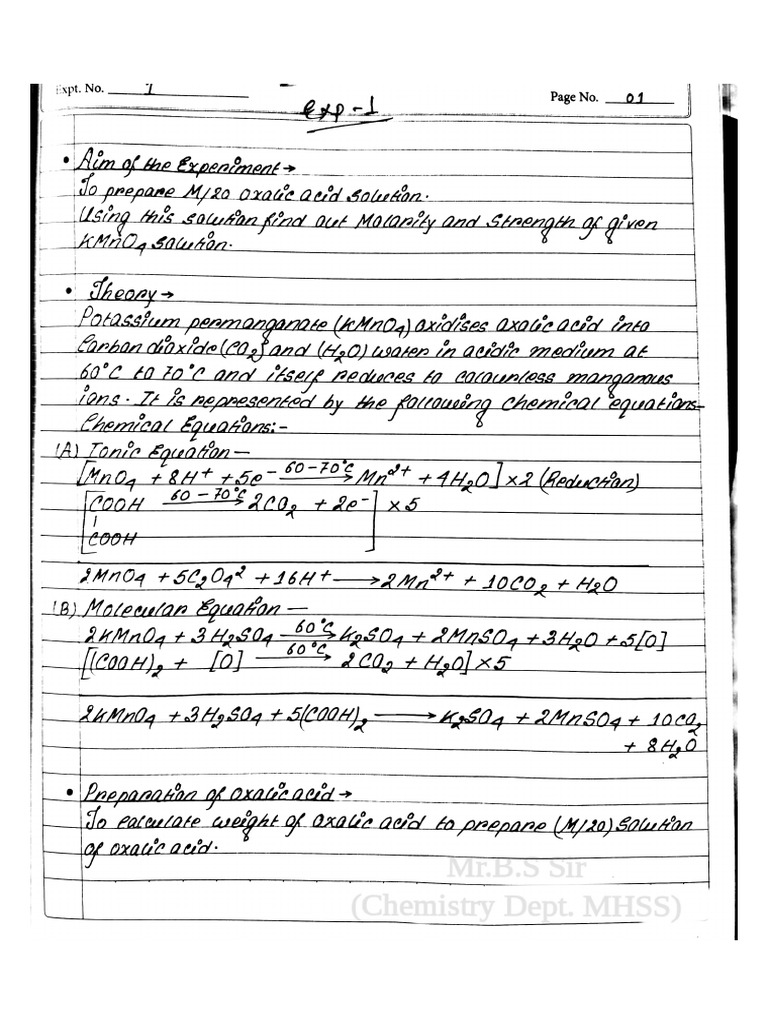 Expt. No. 1
Page No. 01
Exp-1
• Aim of the Experiment →
To prepare M/20 Oxalic acid solution.
Using this solution find out Molarity and Strength of given
KMnO₄ solution.
• Theory →
Potassium permanganate (KMnO₄) oxidises oxalic acid into
Carbon dioxide (CO₂) and (H₂O) water in acidic medium at
60°C to 70°C and itself reduces to colourless manganous
ions. It is represented by the following Chemical equations-
Chemical Equations:-
(A) Ionic Equation —
[MnO₄ + 8H⁺ + 5e⁻ 60-70°C → Mn²⁺ + 4H₂O] × 2 (Reduction)
[COOH 60-70°C → 2CO₂ + 2e⁻] × 5
COOH
2MnO₄ + 5C₂O₄² + 16H⁺ → 2Mn²⁺ + 10CO₂ + H₂O
(B) Molecular Equation —
2KMnO₄ + 3H₂SO₄ 60°C → K₂SO₄ + 2MnSO₄ + 3H₂O + 5[O]
[(COOH)₂ + [O] 60°C → 2CO₂ + H₂O] × 5
2KMnO₄ + 3H₂SO₄ + 5(COOH)₂ → K₂SO₄ + 2MnSO₄ + 10CO₂
+ 8H₂O
• Preparation of oxalic acid →
To calculate weight of oxalic acid to prepare (M/20) Solution
of oxalic acid.
Mr.B.S Sir
(Chemistry Dept. MHSS)